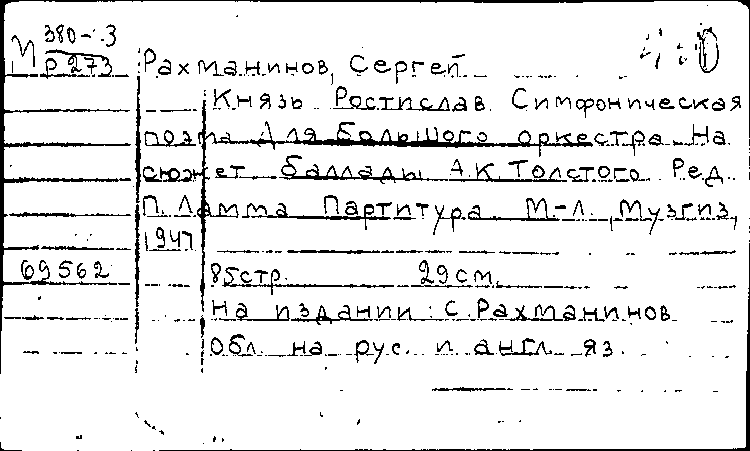 М 380-3
Р 273
Рахманинов, Сергей
Князь Ростислав Симфоническая
поэма для большого оркестра На
сюжет баллады А.К. Толстого Ред.
П. Ламма Партитура М.-Л., Музгиз,
1947
69562 85стр. 29см.
На издании: С. Рахманинов
Обл. на рус. и англ. яз.